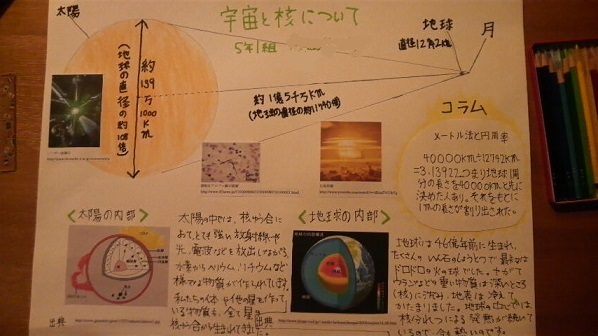 宇宙と核について
5年1組
太陽
地球
直径12742km
月
約139万1000km
(地球の直径の約108倍)
約1億5千万km
(地球の直径の約11740倍)
コラム
メートル法と円周率
40000km÷12742km
=3.13922つまり地球1周
分の長さを40000kmと先に
決めた人あり、それをもとに
1mの長さが割り出された。
<太陽の内部>
太陽の中では、核ゆう合に
よって、とても強い放射線や
光、電波などを放出しながら、
水素からヘリウム、リチウムなど
様々な物質が作られています。
私たちの体や他の星を作って
いる物質も、全て星の
核ゆう合から生まれました。
出典
<地球の内部>
地球は46億年前に生まれ、
たくさんのいん石のしょうとつで最初は
ドロドロの火の球でした。やがて
ウランなどの重い物質は深いところ
(核)に沈み、地表は冷えて
かたまりました。地球の中では
核分れつによる発熱が続いて
いるので、今も熱いのです。
出典